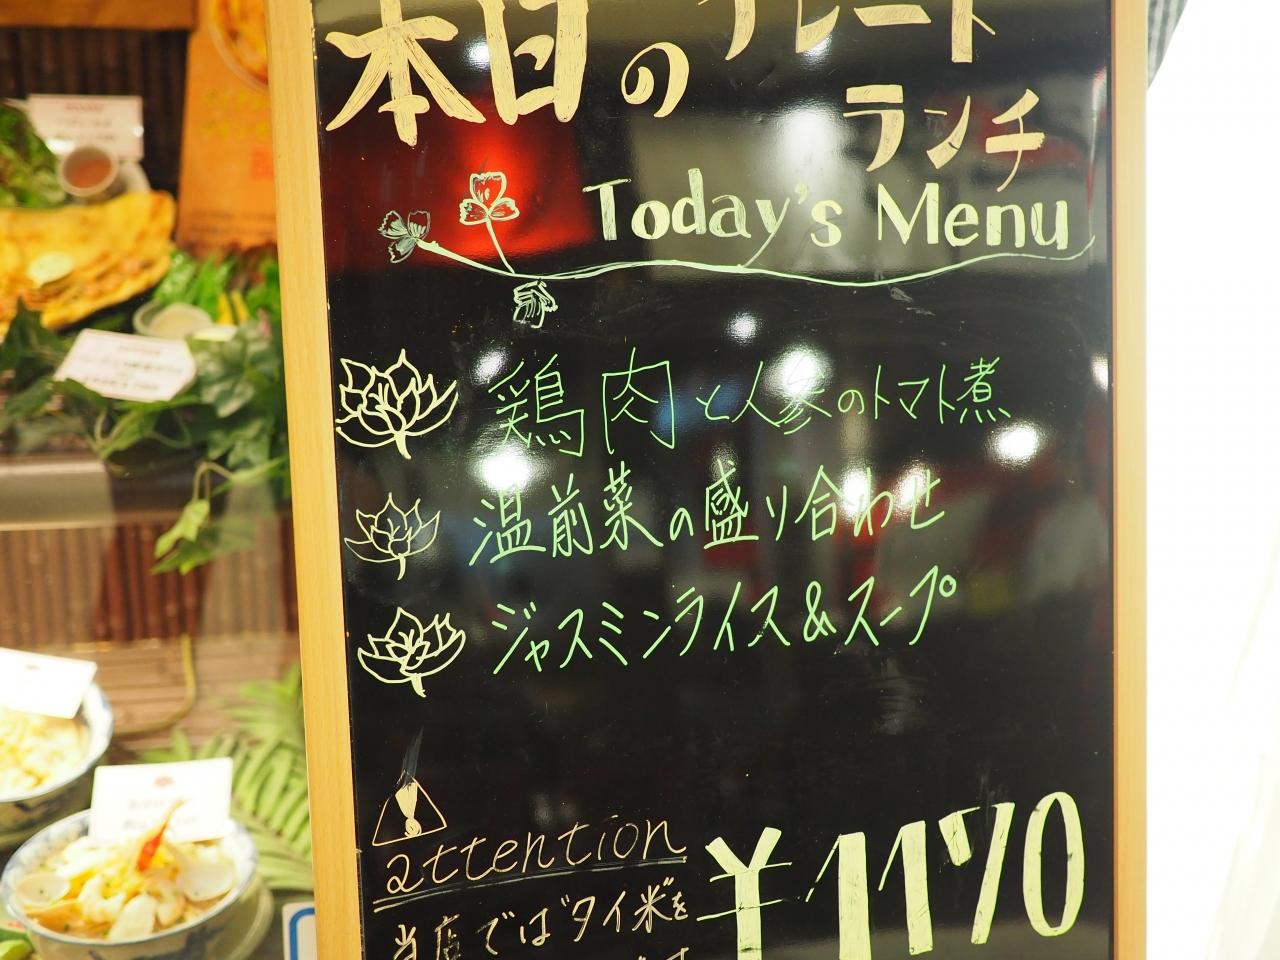 本日のプレート
ランチ
Today's Menu
鶏肉と人参のトマト煮
温前菜の盛り合わせ
ジャスミンライス&スープ
attention
¥1170
当店では"タイ米"を